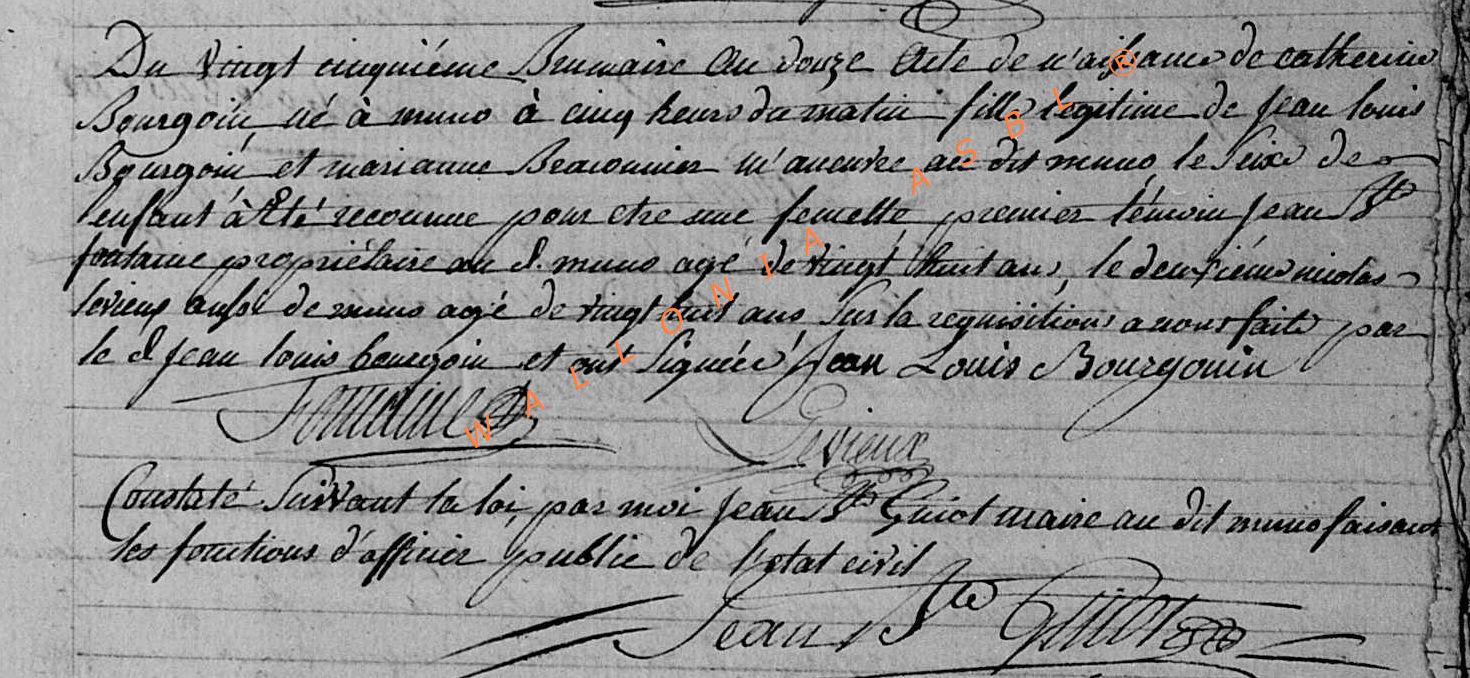 Du vingt cinquiéme Brumaire an douze Acte de n'aissance de catherine
Bourgoin né à muno à cinq heurs du matin fille legitime de Jean louis
Bourgoin et marianne m'aneuvre au dit muno le Seixe de
l'enfant à Eté reconnue pour etre une femelle premier témoin Jean Bte
fontaine propriétaire au d. muno agé de vingt huit ans, le deuxiéme nicolas
levieux ausi de muno agé de vingt huit ans Sur la requisitions a nous faite par
le d Jean louis bourgoin et ont Signéé Jean Louis Bourgouin
Fontaine Levieux
Constaté Suivant la loi, par moi Jean Bte Guiot maire au dit muno faisant
les fonctions d'officier public de l'etat civil
Jean Bte Guiot
WALLONIA ASBL ®